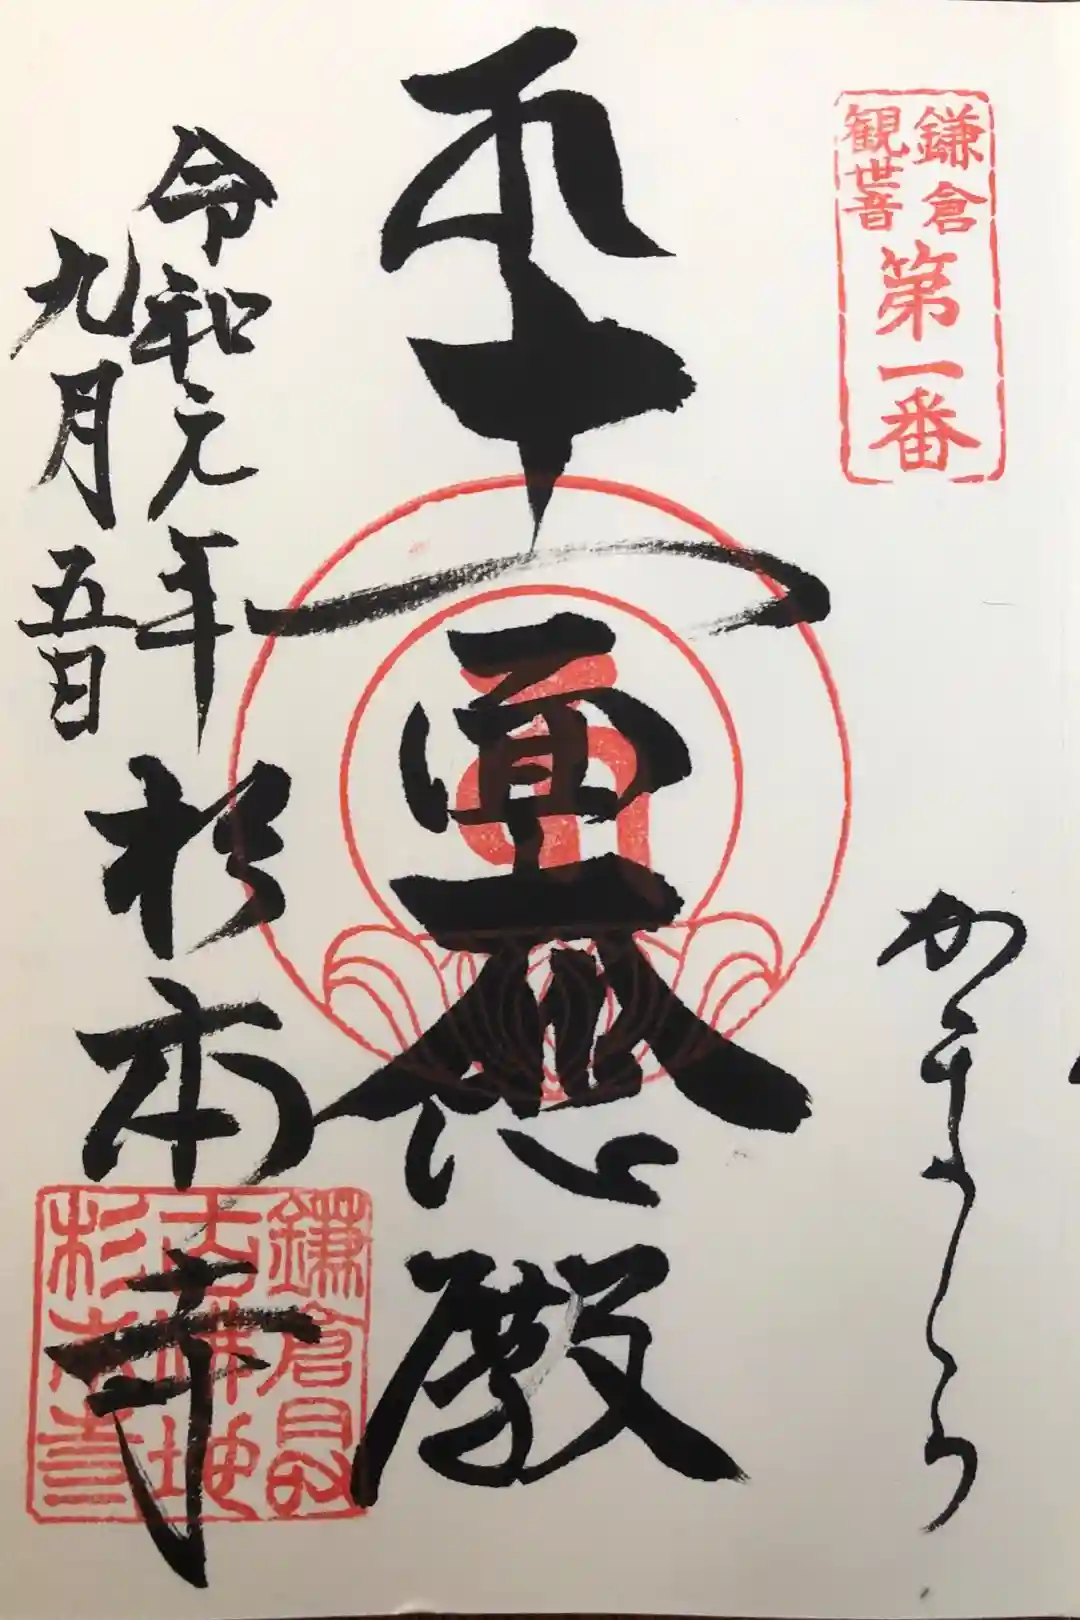 鎌倉
観世音
第一番
かまくら
十一面大悲殿
令和元年
九月五日
杉本寺
鎌倉最
古佛地